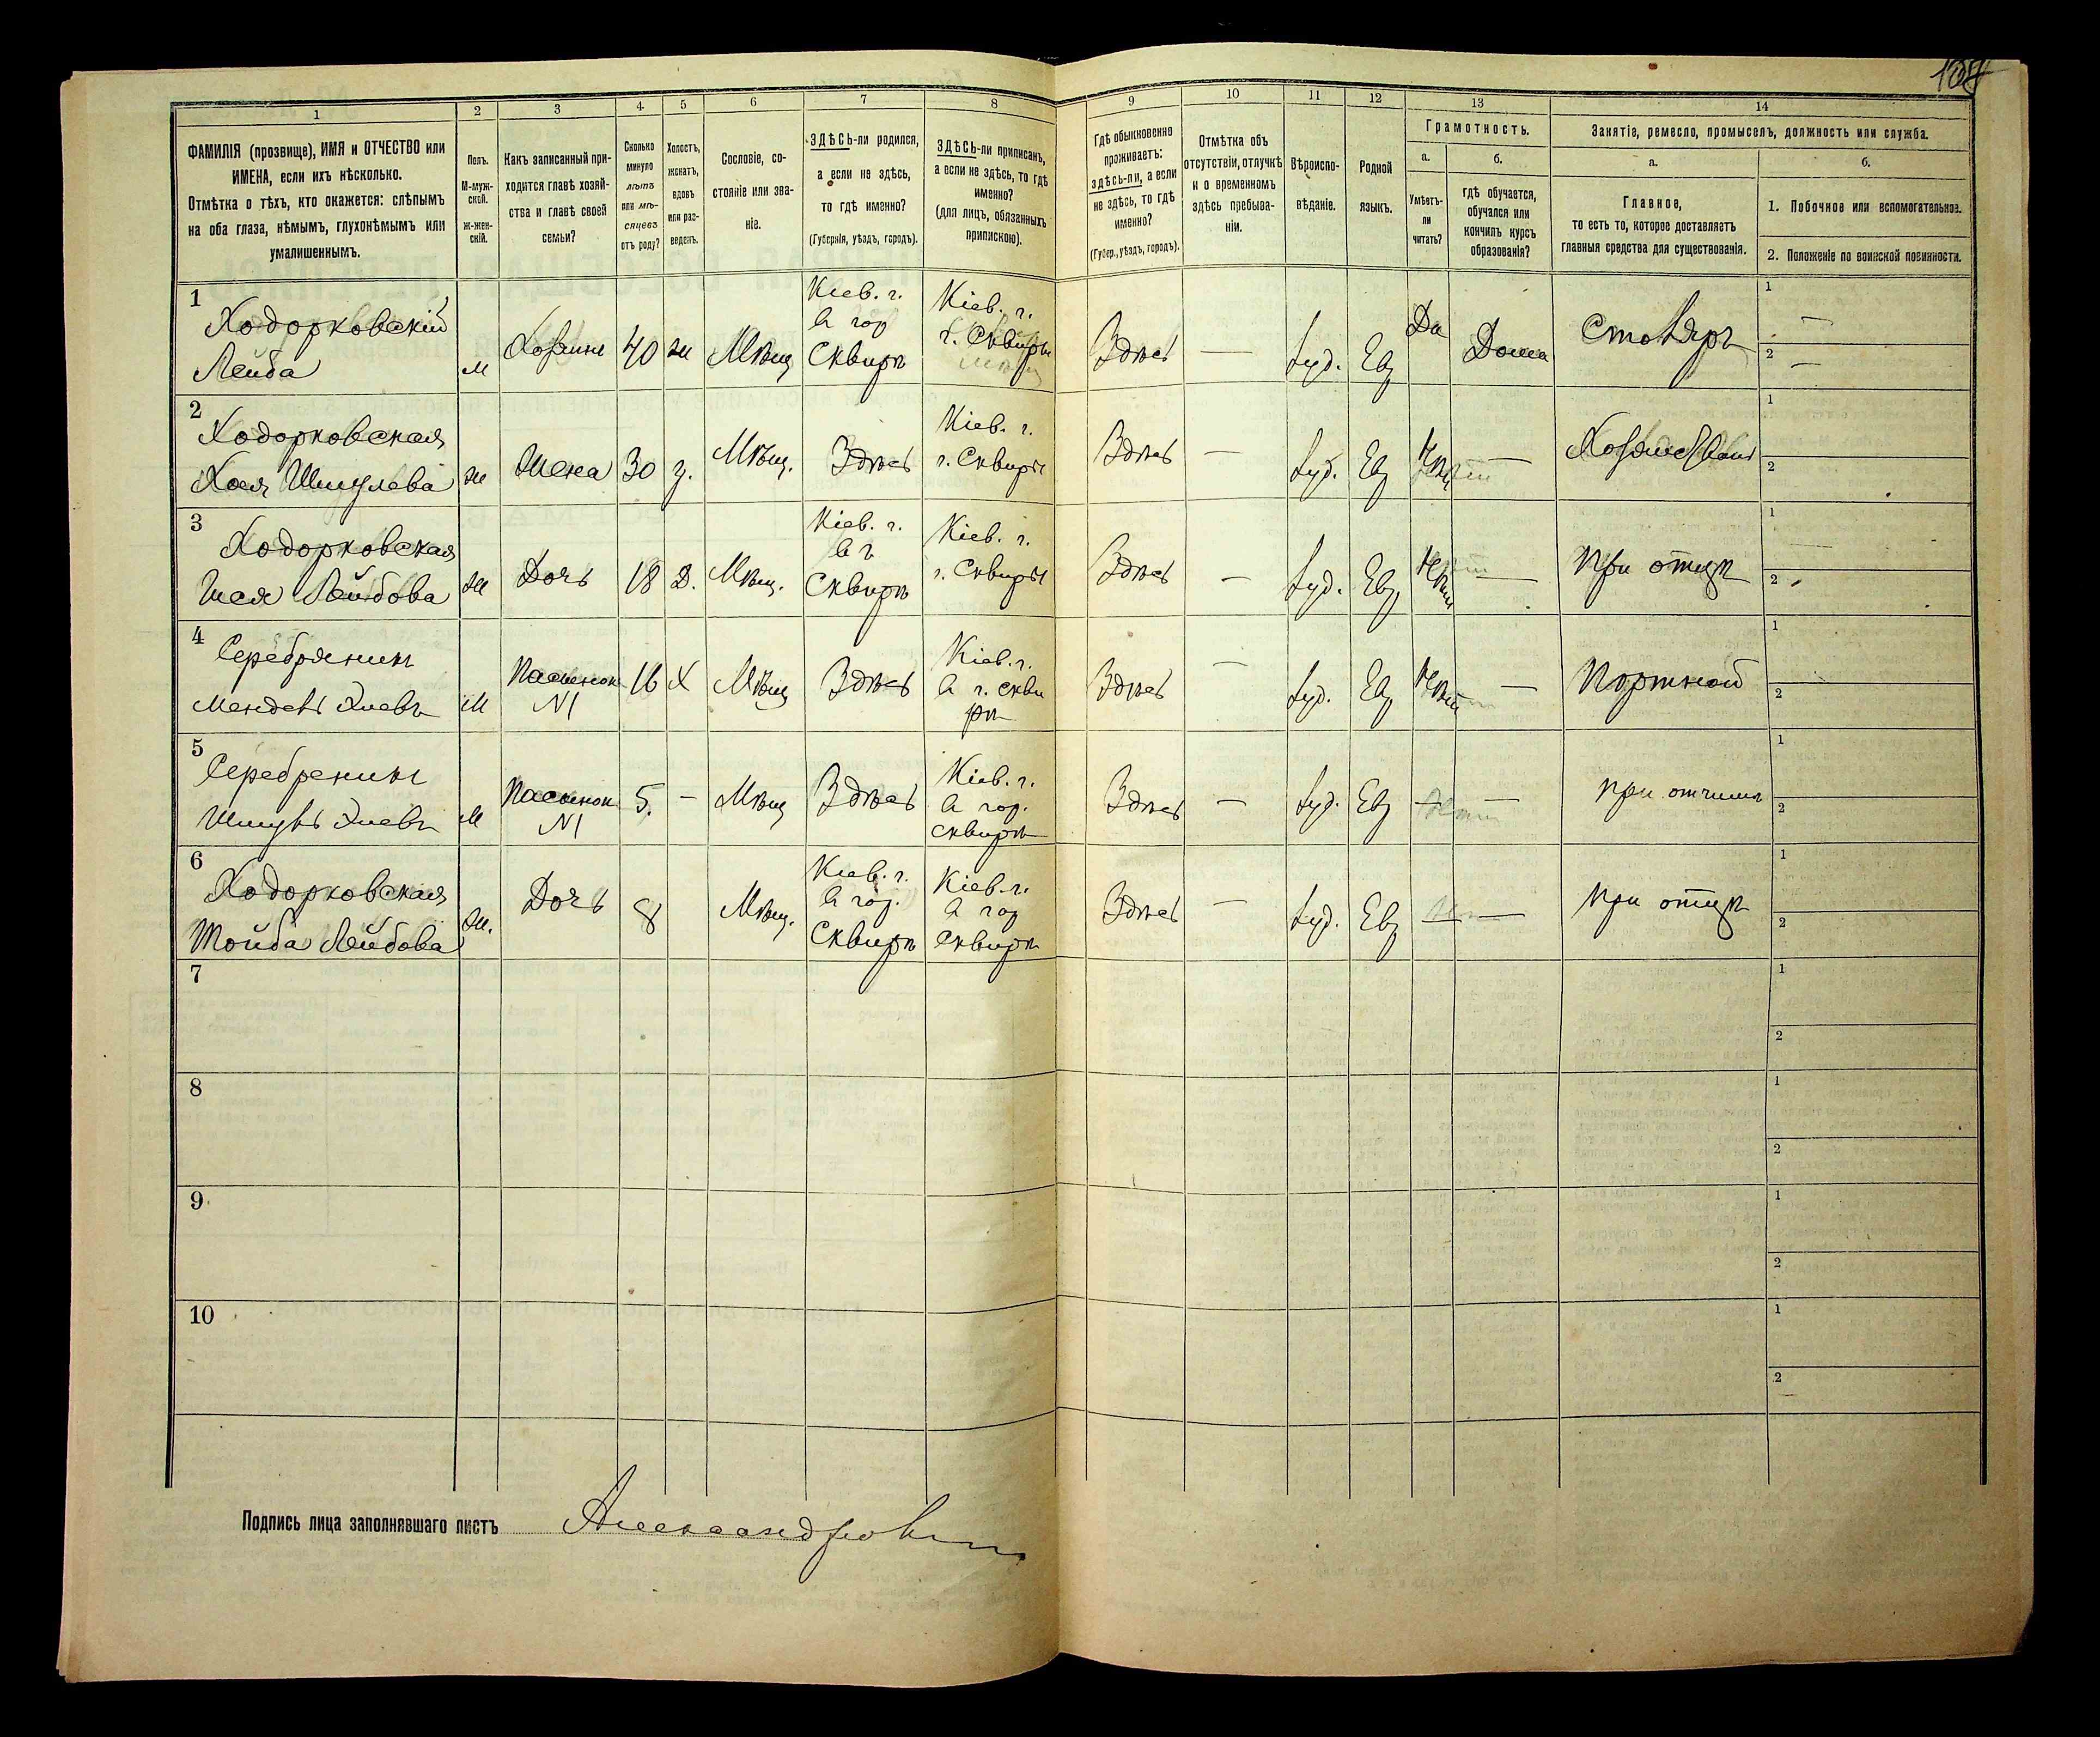 108
1 2 3 4 5 6 7 8 9 10 11 12 13 14
ФАМИЛІЯ (прозвище), ИМЯ и ОТЧЕСТВО или
ИМЕНА, если ихъ нѣсколько.
Отмѣтка о тѣхъ, кто окажется: слѣпымъ
на оба глаза, нѣмымъ, глухонѣмымъ или
умалишеннымъ.
Полъ.
М-муж-
ской.
ж-жен-
скій.
Какъ записанный при-
ходится главѣ хозяй-
ства и главѣ своей
семьи?
Сколько
минуло
лѣтъ
или мѣ-
сяцевъ
отъ роду?
Холостъ,
женатъ,
вдовъ
или раз-
веденъ.
Сословіе, со-
стояніе или зва-
ніе.
ЗДѢСЬ-ли родился,
а если не здѣсь,
то гдѣ именно?
(Губернія, уѣздъ, городъ).
ЗДѢСЬ-ли приписанъ,
а если не здѣсь, то гдѣ
именно?
(для лицъ, обязанныхъ
припискою).
Гдѣ обыкновенно
проживаетъ:
здѣсь-ли, а если
не здѣсь, то гдѣ
именно?
(Губер., уѣздъ, городъ).
Отмѣтка объ
отсутствіи, отлучкѣ
и о временномъ
здѣсь пребыва-
ніи.
Вѣроиспо-
вѣданіе.
Родной
языкъ.
Грамотность.
а.
Умѣетъ-
ли
читать?
б.
гдѣ обучается,
обучался или
кончилъ курсъ
образованія?
Занятіе, ремесло, промыселъ, должность или служба.
а.
Главное,
то есть то, которое доставляетъ
главныя средства для существованія.
б.
1. Побочное или вспомогательное.
2. Положеніе по воинской повинности.
1
Ходорковскій
Лейба
м
Хозяинъ
40
ж
Мѣщ
Кіев. г.
в гор
Сквирѣ
Кіев. г.
г. Сквиры
Здѣсь
—
Іуд.
Ев
Да
Дома
Столяръ
1 —
2 —
2
Ходорковская
Хая Шмулева
ж
Жена
30
з.
Мѣщ.
Здѣсь
Кіев. г.
г. Сквиры
Здѣсь
—
Іуд.
Ев
Нѣт
—
1
2
3
Ходорковская
Лейбова
ж
Дочь
18
Д.
Мѣщ.
Кіев. г.
в г
Сквирѣ
Кіев. г.
г. Сквиры
Здѣсь
—
Іуд.
Ев
Нѣт
—
При отцѣ
1
2
4
Серебряникъ
Мендель Хиевъ
М
Пасынок
N1
16
Х
Мѣщ
Здѣсь
Кіев. г.
в г. Скви
рѣ
Здѣсь
—
Іуд.
Ев
Нѣт
—
Портной
1
2
5
Серебреникъ
Шмуль Хиевъ
М
Пасынок
N1
5.
—
Мѣщ
Здѣсь
Кіев. г.
в гор.
Сквирѣ
Здѣсь
—
Іуд.
Ев
—
—
при отчимѣ
1
2
6
Ходорковская
Тойба Лейбова
ж.
Дочь
8
Мѣщ.
Кіев. г.
в гор.
Сквирѣ
Кіев. г.
в гор
Сквирѣ
Здѣсь
—
Іуд.
Ев
—
—
при отцѣ
1
2
7
1
2
8
1
2
9
1
2
10
1
2
Подпись лица заполнявшаго листъ